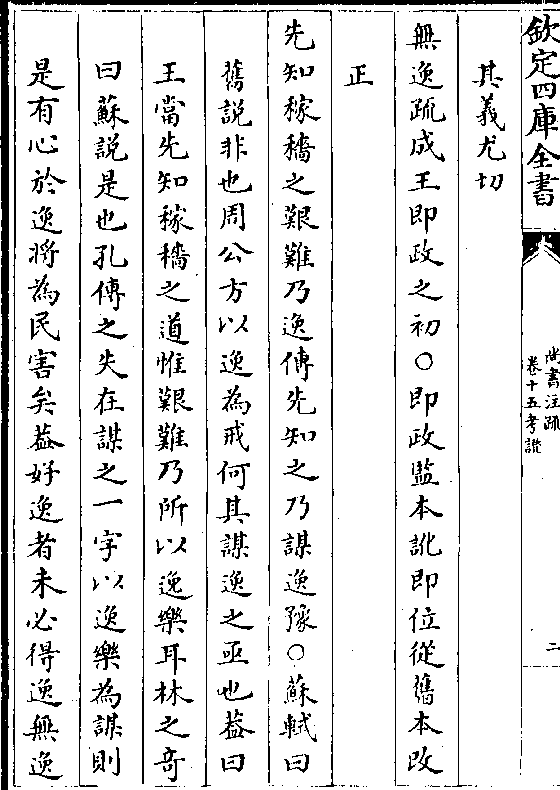 欽定四庫全書
尚書注疏
卷十五考證
二
其義尤切
無逸疏成王即政之初○即政監本訛即位從舊本改
正
先知稼穡之艱難乃逸傳先知之乃謀逸豫○蘇軾曰
舊說非也周公方以逸為戒何其謀逸之亟也葢曰
王當先知稼穡之道惟艱難乃所以逸樂耳林之竒
曰蘇說是也孔傳之失在謀之一字以逸樂為謀則
是有心於逸將為民害矣葢好逸者未必得逸無逸